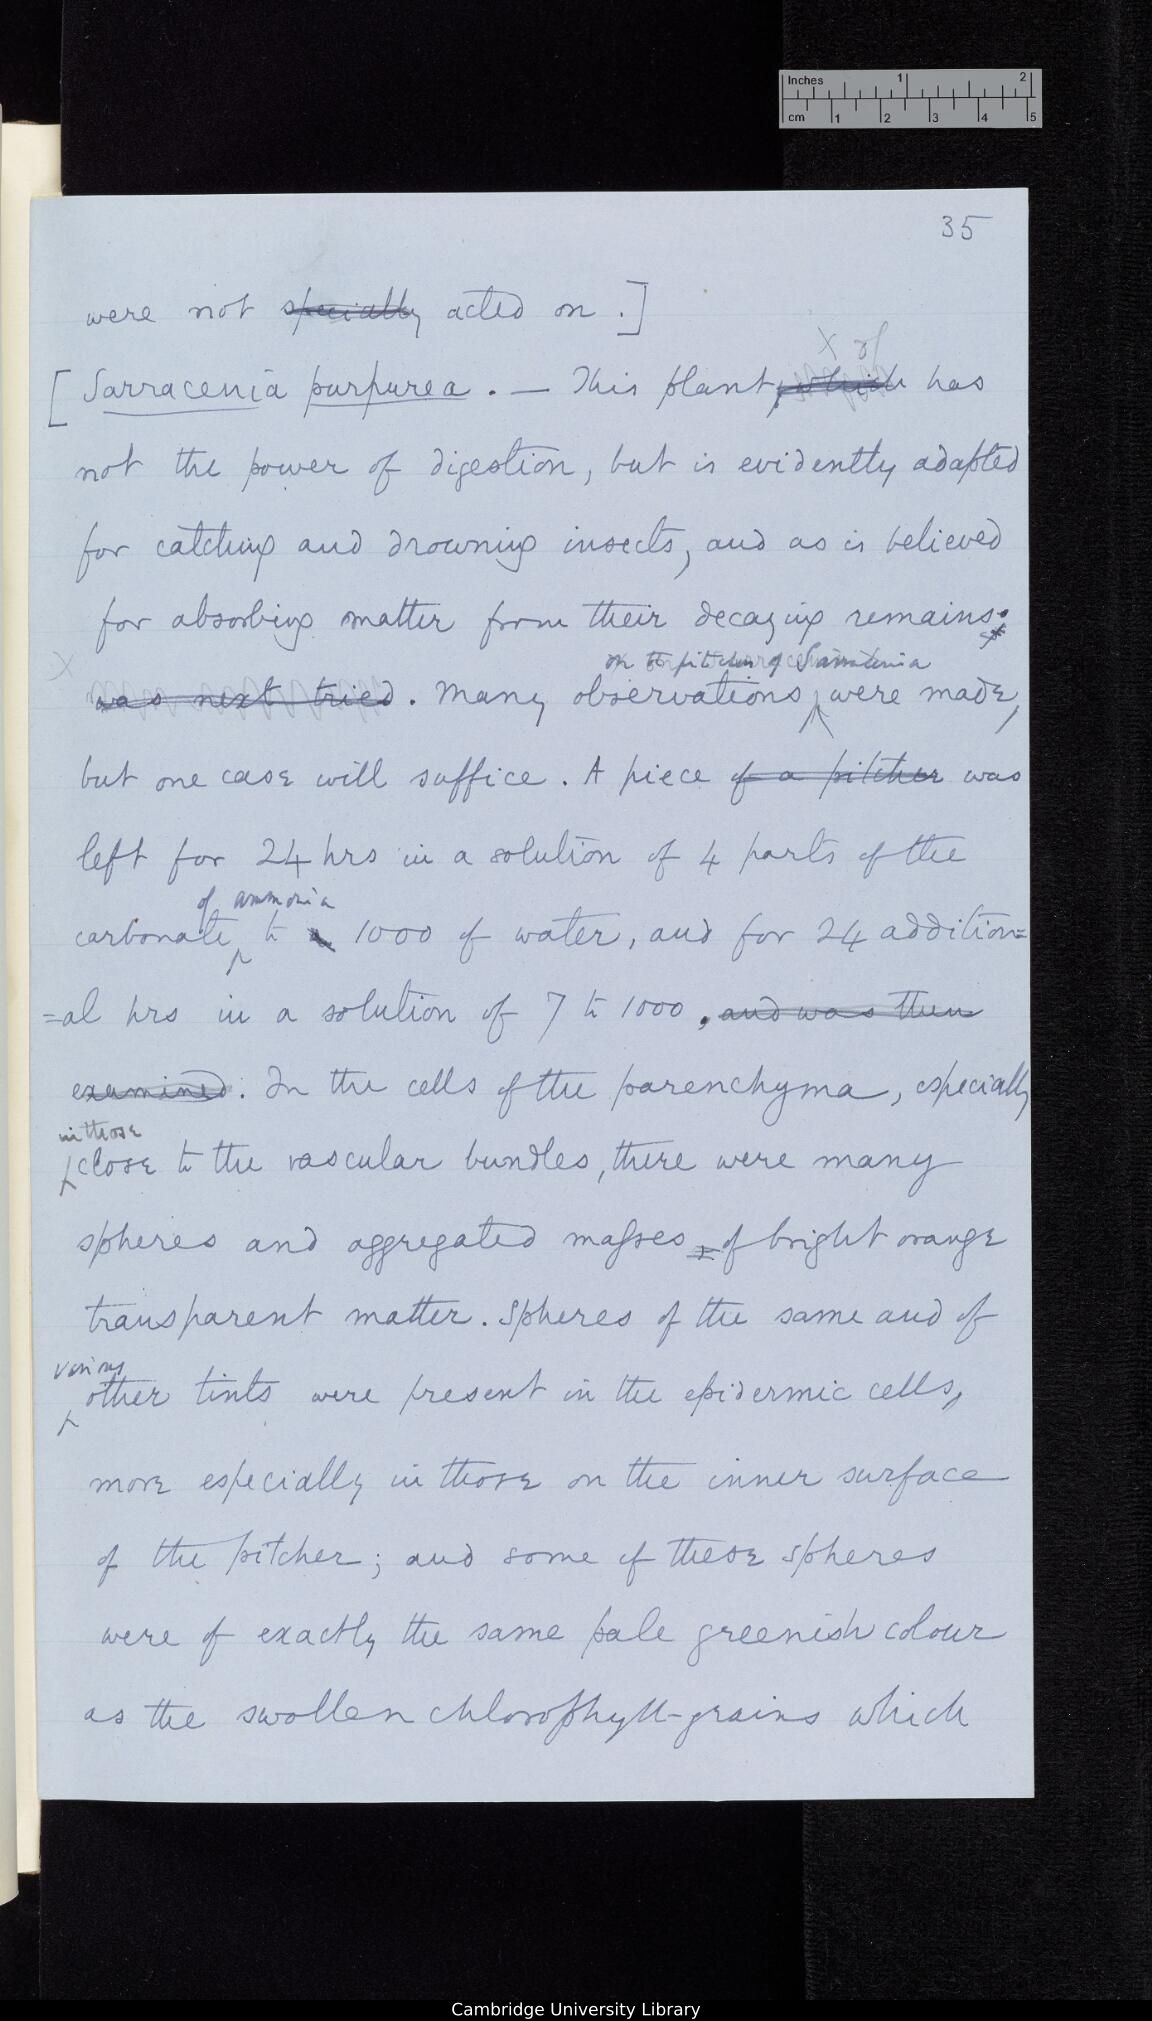 Inches 1 2
cm 1 2 3 4 5
35
were not specially acted on.]
X of
[Sarracenia purpurea. — This plant, which has
not the power of digestion, but is evidently adapted
for catching and drowning insects, and as is believed
for absorbing matter from their decaying remains.
X on the pitcher of Sarracenia
was next tried. Many observations, were made,
but one case will suffice. A piece of a pitcher was
left for 24 hrs in a solution of 4 parts of the
of ammonia
carbonate to a 1000 of water, and for 24 addition=
=al hrs in a solution of 7 to 1000, and was then
examined. In the cells of the parenchyma, especially
in those
close to the vascular bundles, there were many
spheres and aggregated masses of bright orange
transparent matter. Spheres of the same and of
various
other tints were present in the epidermic cells,
more especially in those on the inner surface
of the pitcher; and some of these spheres
were of exactly the same pale greenish colour
as the swollen chlorophyll-grains which
Cambridge University Library